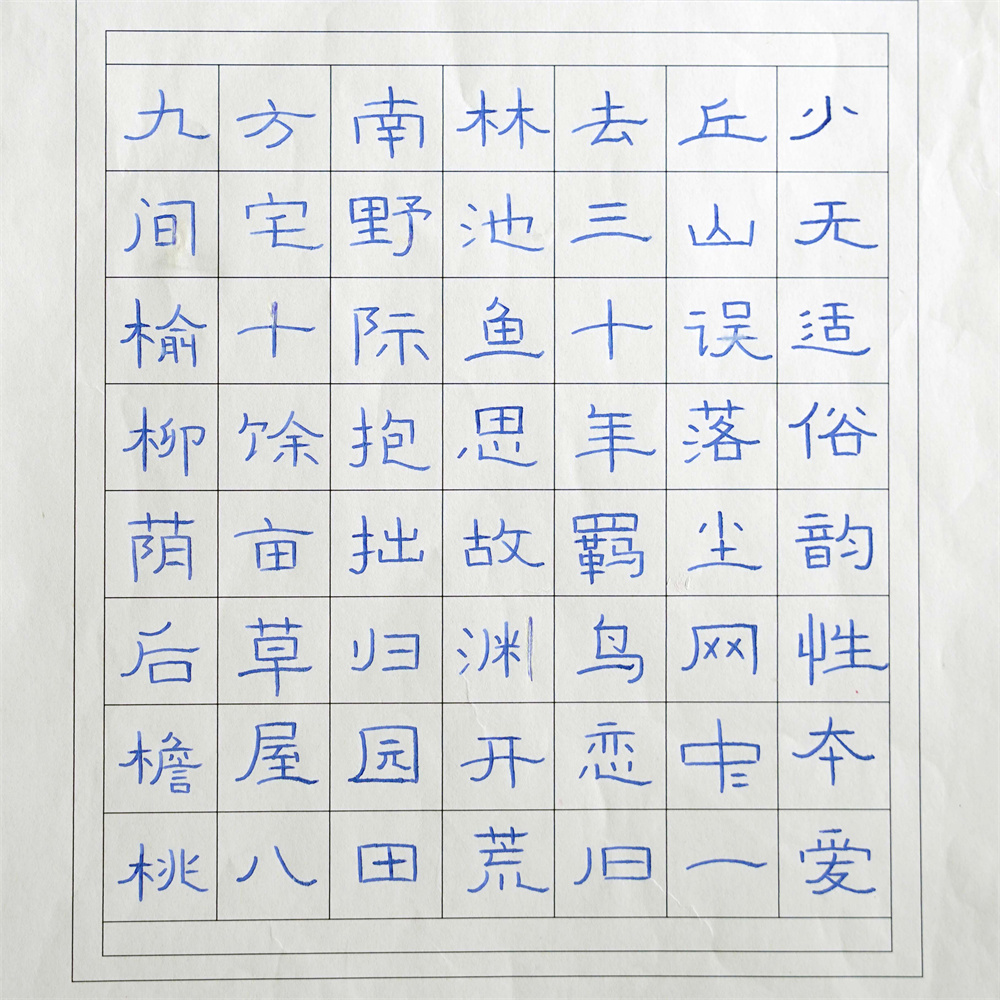 少无适俗韵性本爱
丘山误落尘网中一
去三十年羁鸟恋旧
林池鱼思故渊开荒
南野际抱拙归园田
方宅十馀亩草屋八
九间榆柳荫后檐桃